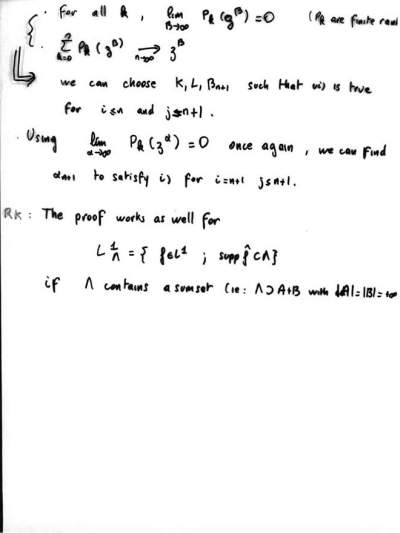 { · For all k, lim_{β→∞} P_k(z^β) = 0 (P_k are finite rank
· ∑_{k=0}^{n} P_k(z^β) →_{n→∞} z^β
we can choose K, L, β_{n+1} such that vi) is true
for i≤n and j≤n+1.
· Using lim_{α→∞} P_k(z^α) = 0 once again, we can find
α_{n+1} to satisfy i) for i=n+1 j≤n+1.
RK: The proof works as well for
L^1_Λ = { f∈L^1 ; supp f̂ ⊂ Λ }
if Λ contains a sumset (ie: Λ ⊃ A+B with |A|=|B|=+∞